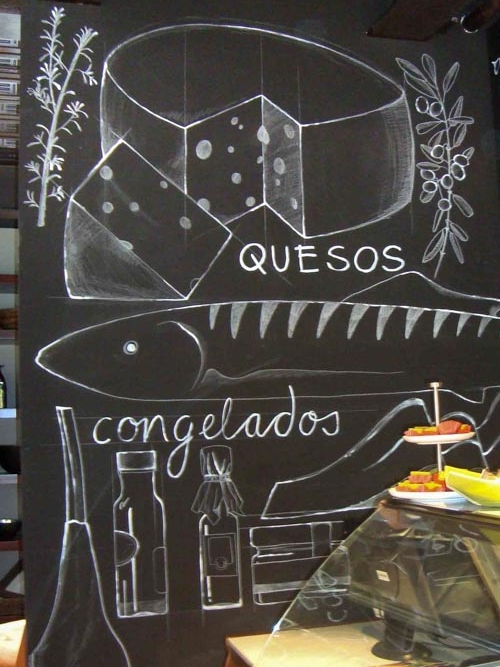 QUESOS
congelados